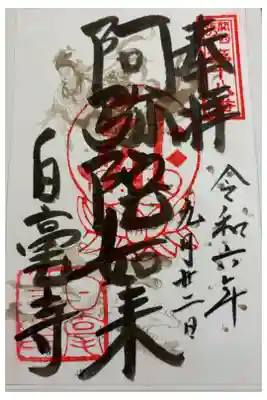 奉拝
令和六年
九月廿二日
阿弥陀如来
白毫寺